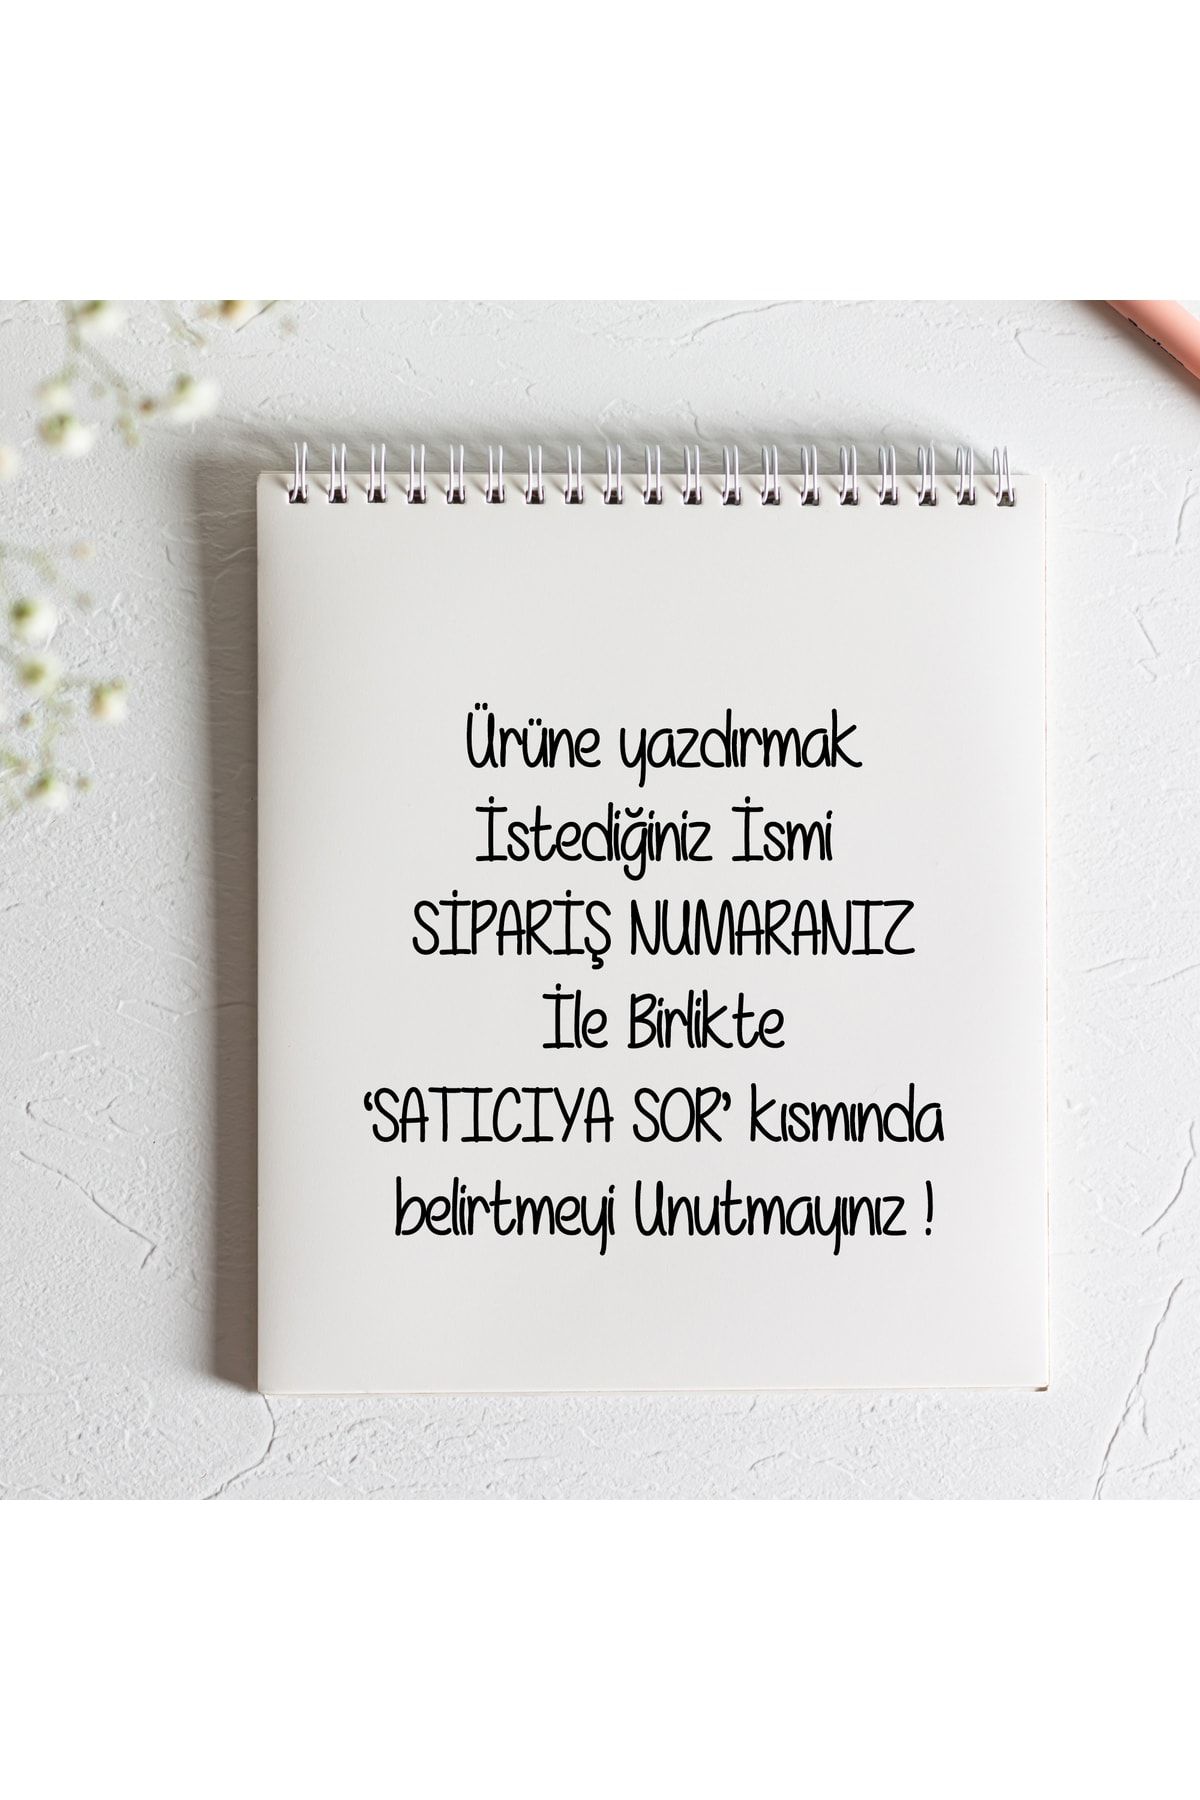 Ürüne yazdırmak
İstediğiniz İsmi
SİPARİŞ NUMARANIZ
İle Birlikte
‘SATICIYA SOR’ kısmında
belirtmeyi Unutmayınız !